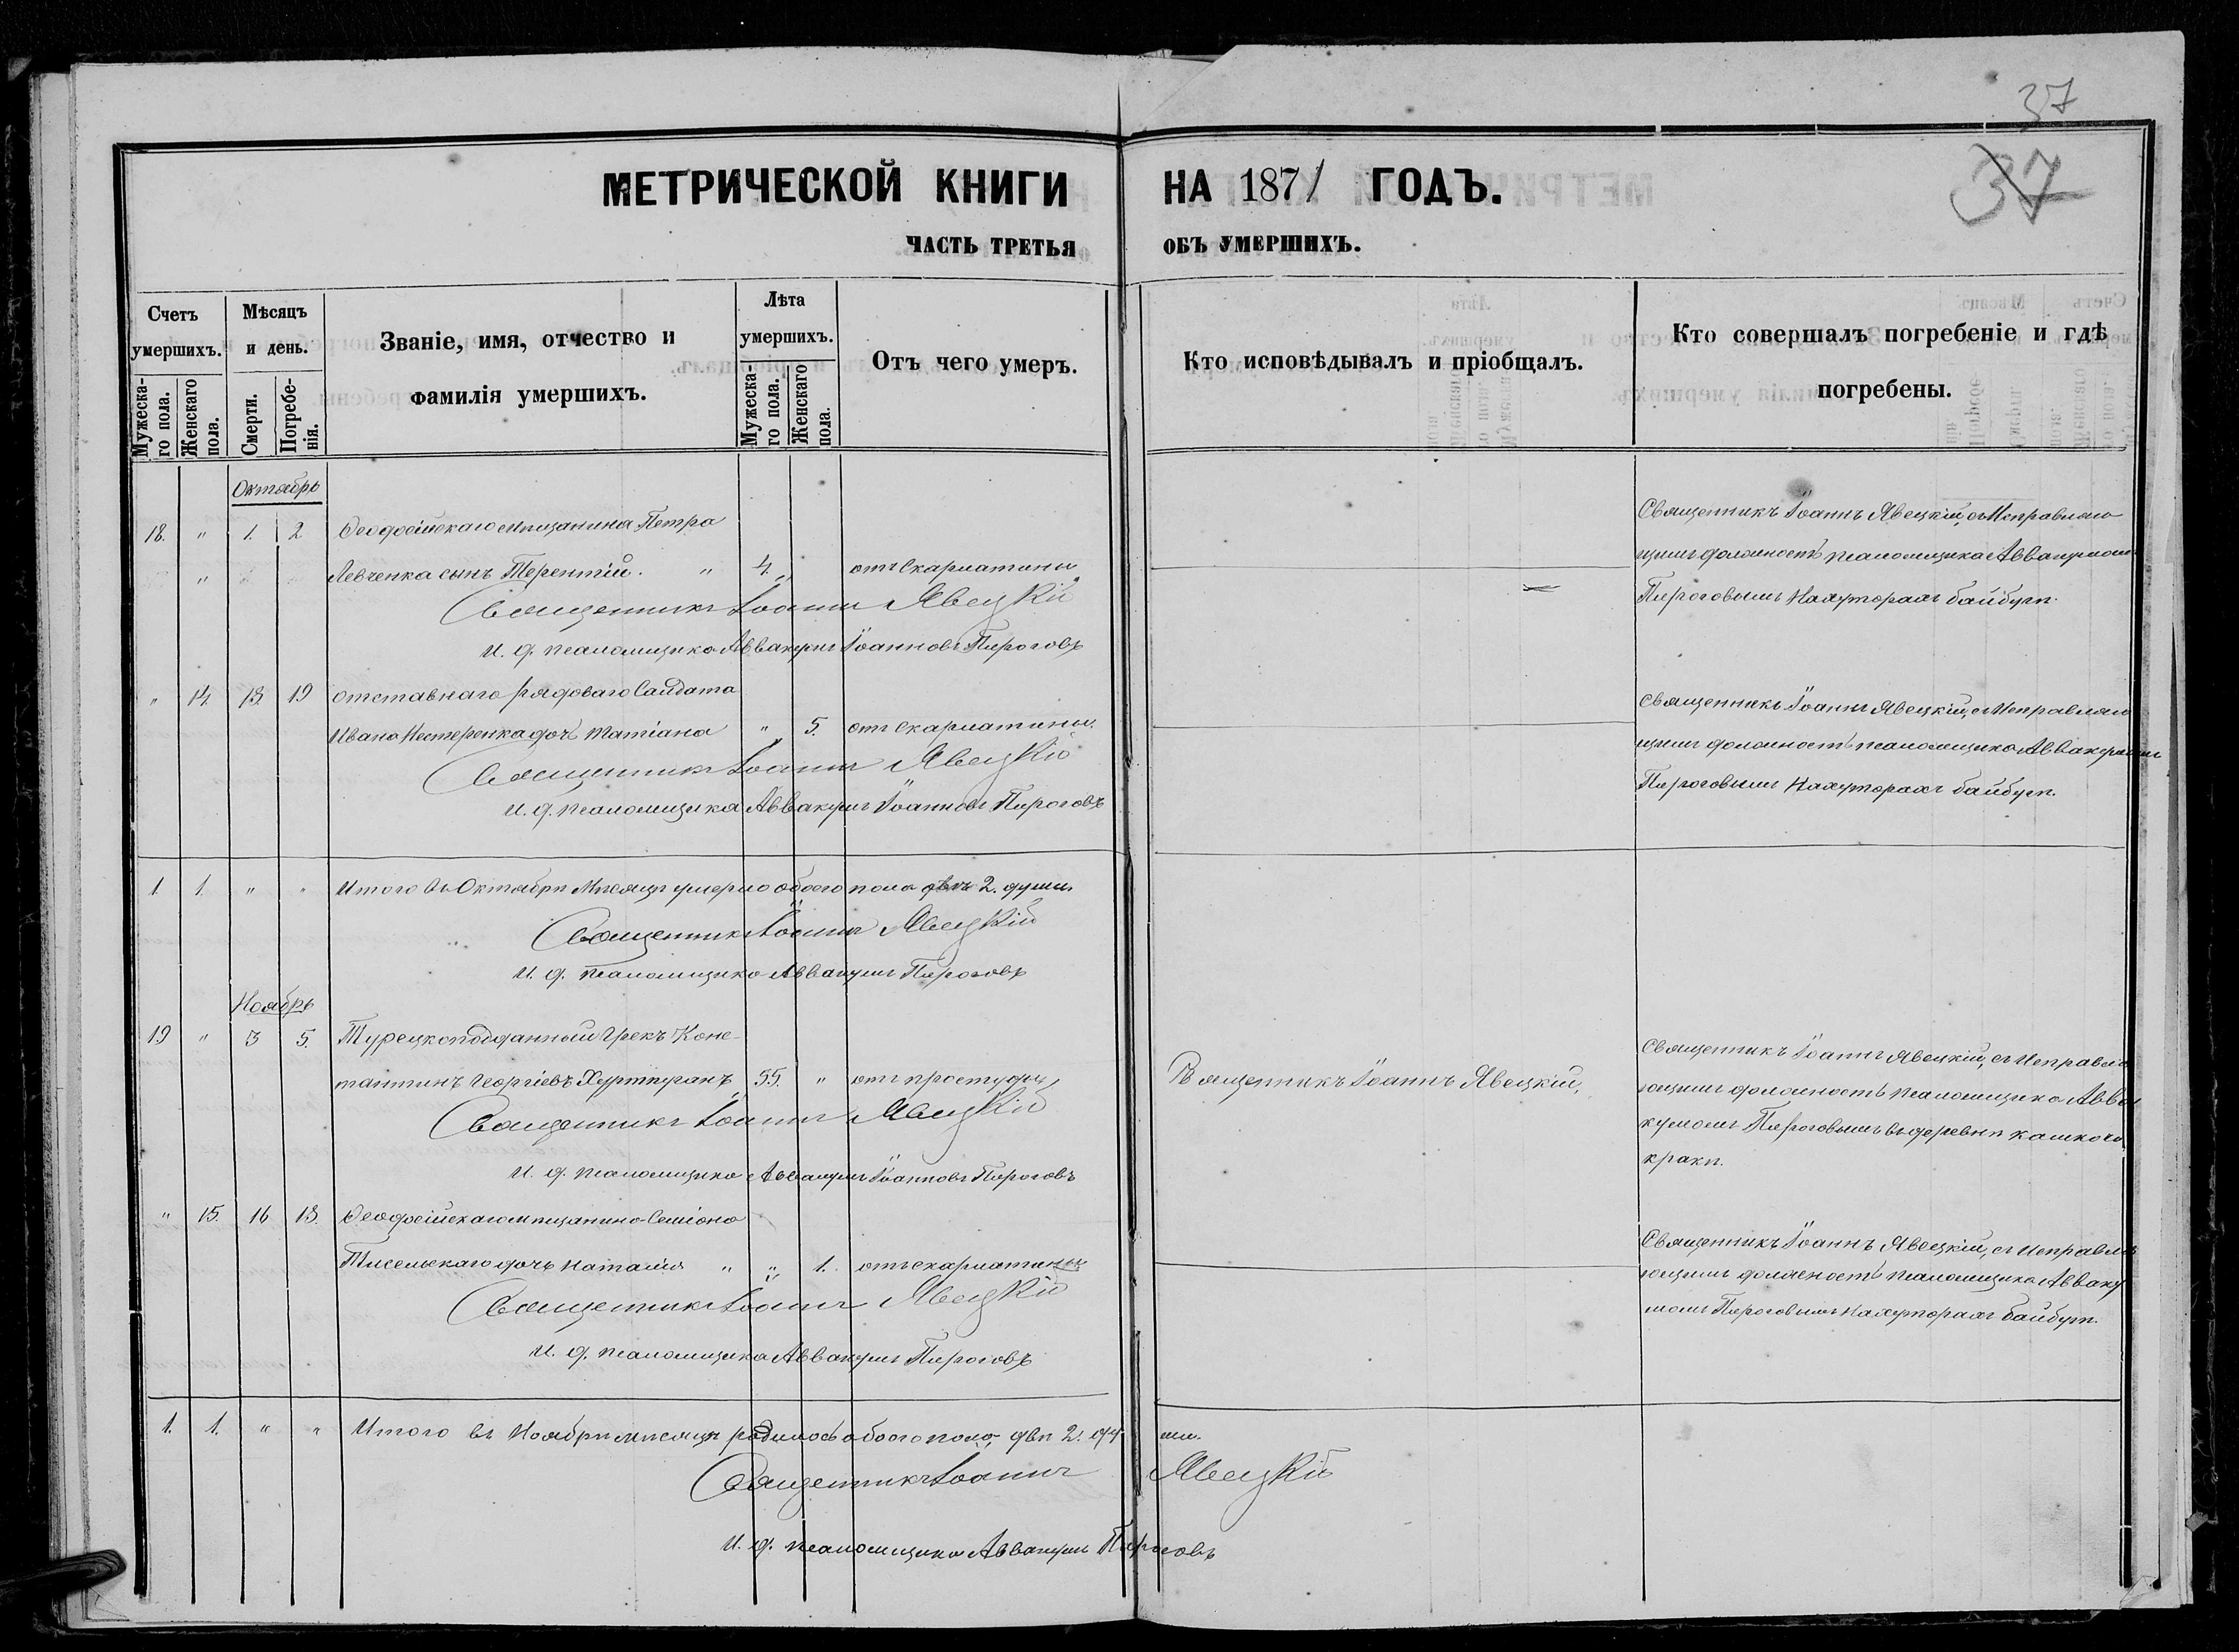 37
37
МЕТРИЧЕСКОЙ КНИГИ НА 1871 ГОДЪ.
ЧАСТЬ ТРЕТЬЯ ОБЪ УМЕРШИХЪ.
Счетъ умершихъ.
Мужеска-го пола.
Женскаго пола.
Мѣсяцъ и день.
Смерти.
Погребе-нія.
Званіе, имя, отчество и фамилія умершихъ.
Лѣта умершихъ.
Мужеска-го пола.
Женскаго пола.
Отъ чего умеръ.
Кто исповѣдывалъ и пріобщалъ.
Кто совершалъ погребеніе и гдѣ погребены.
Октябрь
18. " 1. 2 Ѳеодосійскаго мѣщанина Петра
" Левченка сынъ Терентій. " 4. " отъ Скарлатины
Священникъ Іоаннъ Явецкій
И. д. псаломщика Аввакумъ Іоанновъ Пироговъ
Священникъ Іоаннъ Явецкій, съ Исправляю
щимъ должность псаломщика Аввакумомъ
Пироговымъ На хуторахъ байбугѣ.
" 14. 18. 19 отставнаго рядоваго Салдата
Ивана Нестеренка дочь Татіана " 5. отъ скарлатины.
Священникъ Іоаннъ Явецкій
И. д. псаломщика Аввакумъ Іоанновъ Пироговъ
Священникъ Іоаннъ Явецкій, съ Исправляю
щимъ должность псаломщика Аввакумомъ
Пироговымъ На хуторахъ байбугѣ.
1. 1. " " Итого въ Октябрѣ Мѣсяцѣ умерло обоего пола двѣ 2. души.
Священникъ Іоаннъ Явецкій
И. д. псаломщика Аввакумъ Пироговъ
Ноябрь
19 " 3 5. Турецкоподданный Грекъ Конс-
тантинъ Георгіевъ 55. " отъ простуды,
Священникъ Іоаннъ Явецкій
И. д. псаломщика Аввакумъ Іоанновъ Пироговъ
Священникъ Іоаннъ Явецкій,
Священникъ Іоаннъ Явецкій, съ Исправля
ющимъ должность псаломщика Авва
кумомъ Пироговымъ въ деревнѣ
" 15. 16 18. Ѳеодосійскаго мѣщанина Семіона
дочь Наталія " " 1. отъ скарлатины
Священникъ Іоаннъ Явецкій
И. д. псаломщика Аввакумъ Пироговъ
Священникъ Іоаннъ Явецкій, съ Исправля
ющимъ должность псаломщика Авваку
момъ Пироговымъ На хуторахъ байбугѣ.
1. 1. " " Итого въ Ноябрѣ мѣсяцѣ родилось обоего пола, двѣ 2. ду ши.
Священникъ Іоаннъ Явецкій
И. д. псаломщика Аввакумъ Пироговъ